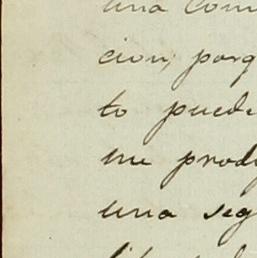 una com
cion, porq
to puede
me prod
una seg